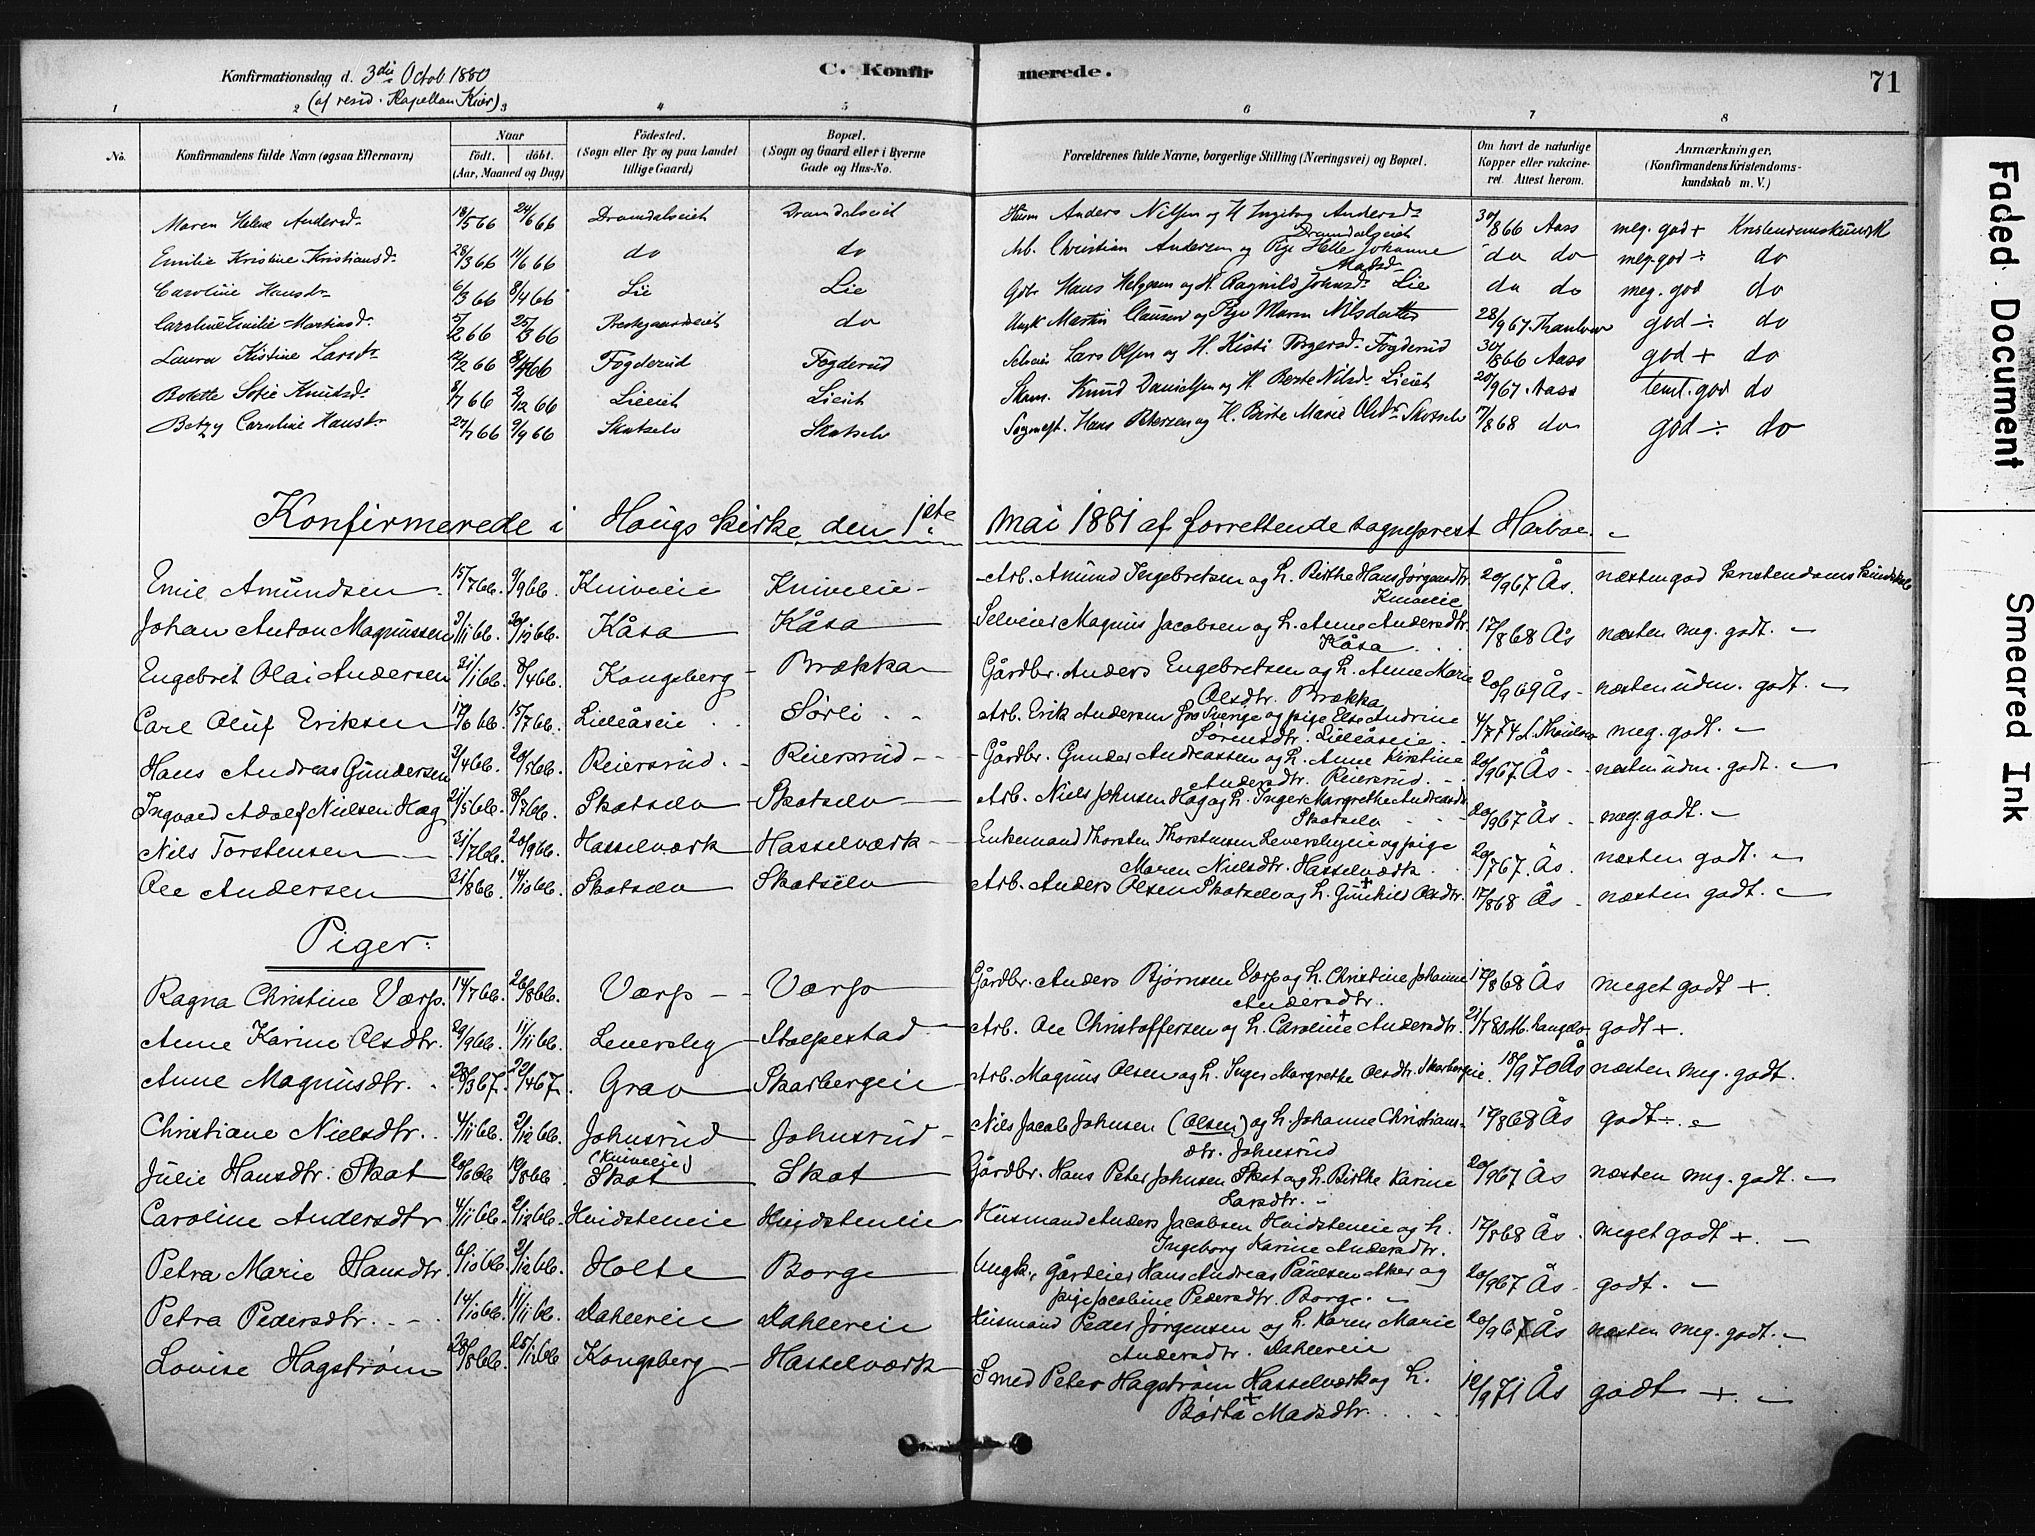 Konfirmationsdag d. 3die Octob 1880
(af resid. Kapellan Kiær)
C. Konfirmerede.
71
1 2 3 4 5 6 7 8
No.
Konfirmandens fulde Navn (ogsaa Efternavn)
Naar
födt. döbt.
(Aar, Maaned og Dag)
Födested.
(Sogn eller By og paa Landet tillige Gaard)
Bopæl.
(Sogn og Gaard eller i Byerne Gade og Hus-No.
Forældrenes fulde Navne, borgerlige Stilling (Næringsvei) og Bopæl.
Om havt de naturlige Kopper eller vaccineret. Attest herom.
Anmærkninger,
(Konfirmandens Kristendomskundskab m. V.)
Maren Helene Andersd. 18/5 66 24/6 66 Dramdalseiet Dramdalseiet Husm Anders Nilsen og H Ingebog Andersdr Dramdalseiet 30/8 66 Aass meg. god + Kristendomskundsk
Emilie Kristine Kristiansd. 28/3 66 11/6 66 do do Arb. Christian Andersen og Pige Helle Johanne Madsdr do do meg. god ÷ do
Caroline Hansdr 6/3 66 8/4 66 Lie Lie Gdbr Hans Helgesen og H. Ragnild Johnsdr Lie do do meg. god do
Caroline Emilie Martinsdr 5/2 66 25/3 66 Prestegaardseiet do Ungk Martin Clausen og Pige Maren Nilsdatter 28/9 67 god ÷ do
Laura Kistine Larsdr 12/2 66 8/4 66 Fogderud Fogderud Selveier Lars Olsen og H. Kisti Torgersdr Fogderud 30/8 66 Aass god + do
Bolette Sofie Knudsdr 8/7 66 2/12 66 Lieeiet Lieiet Skom. Knud Danielsen og H Berte Nilsdr Lieiet 20/9 67 Aass teml. god do
Betzy Caroline Hansdr 27/7 66 9/9 66 Skotselv Skotselv Sagmest. Hans Petersen og H. Birte Marie Olsdr Skotselv 17/8 68 do god ÷ do
Konfirmerede i Hougs kirke den 1ste mai 1881 af forrettende sogneprest Horboe.
Emil Amundsen 15/7 66. 9/9 66. Kniveeie Kniveeie Arb. Amund Ingebretsen og h. Birthe Hans Jørgensdtr. Kniveeie 20/9 67 Ås. næsten god kristendomskundskab
Johan Anton Magnussen 3/11 66. 26/12 66. Kåsa Kåsa Selveier Magnus Jacobsen og h. Anne Andersdtr. Kåsa 17/8 68 Ås næsten meg. godt.
Engebret Olai Andersen 21/1 66. 8/4 66. Kongsberg Brækka Gårdbr. Anders Engebretsen og h. Anne Marie Olsdtr. Brækka 20/9 69 Ås næsten udm. godt.
Carl Oluf Eriksen 17/6 66. 15/7 66. Lilleåseie Sørli Arb. Erik Andersen fra Sverige og pige Else Andrine Sørensdtr. Lilleåseie 4/7 74 meg. godt.
Hans Andreas Gundersen 3/4 66. 20/5 66. Reiersrud Reiersrud Gårdbr. Gunder Andreassen og h. Anne Kirstine Andersdtr. Reiersrud 20/9 67 Ås næsten udm. godt.
Ingvald Adolf Nielsen Hag 21/5 66. 8/7 66. Skotselv Skotselv Arb. Niels Johnsen Hag og h. Inger Margrethe Andreasdr. Skotselv 20/9 67 Ås meg. godt.
Nils Torstensen 31/7 66. 20/9 66. Hasselværk Hasselværk Enkemand Thorsten Thorstensen Leversbyeie og pige Maren Nielsdtr. Hasselværk. 20/7 67. Ås. næsten godt.
Ole Andersen 31/8 66. 14/10 66. Skotselv Skotselv Arb. Anders Olsen Skotselv og h. Gunhild Olsdtr. 17/8 68 Ås næsten godt.
Piger:
Ragna Christine Værp. 14/7 66. 26/8 66. Værp Værp Gårdbr. Anders Bjørnsen Værp og h. Christine Johanne Andersdtr. 17/8 68 Ås meget godt +.
Anne Karine Olsdtr. 29/9 66. 11/11 66. Leversbyg Stolpestad Arb. Ole Christoffersen og h. Caroline Andersdtr. godt +.
Anne Magnusdtr. 28/3 67. 22/4 67. Grav Skarbergeie Arb. Magnus Olsen og h. Inger Margrethe Olsdtr. Skarbergeie. 18/9 70 Ås næsten meg. godt.
Christiane Nielsdtr. 4/11 66. 2/12 66. Johnsrud Johnsrud Nils Jacob Johnsen (Olsen) og h. Johanne Christiansdtr. Johnsrud 17/8 68 Ås godt ÷.
Julie Hansdtr. Skot 20/6 66 19/8 66. (Kniveeie) Skot Skot Gårdbr. Hans Peter Johnsen Skot og h. Birthe Karine Larsdtr. 20/9 67 Ås næsten meg. godt.
Caroline Andersdtr 4/11 66. 2/12 66. Hvidsteneie Hvidsteneie Husmand Anders Jacobsen Hvidsteneie og h. Ingeborg Karine Andersdtr. 17/8 68 Ås meget godt +.
Petra Marie Hansdtr. 6/10 66. 2/12 66. Holte Borge Ungk., gårdeier Hans Andreas Paulsen Aker og pige Jacobine Pedersdtr. Borge. 20/9 67 Ås godt.
Petra Pedersdtr. 14/10 66. 11/11 66. Dahlereie Dahlereie Husmand Peder Jørgensen og h. Karen Marie Andersdtr. Dahlereie 20/9 67 Ås næsten meg. godt.
Lovise Hagstrøm 28/8 66. 25/12 66 Kongsberg Hasselværk Smed Peter Hagstrøm Hasselværk og h. Børta Madsdtr. 12/9 71 Ås godt +.
Faded Document
Smeared Ink